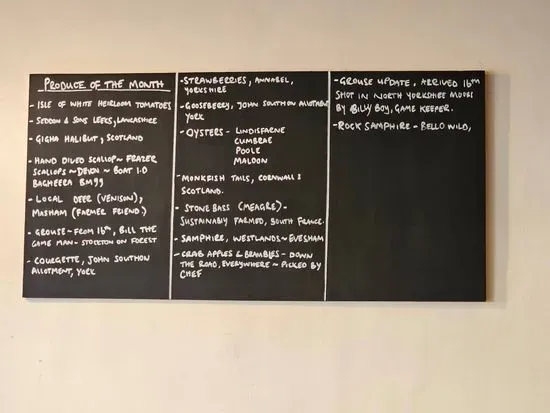 PRODUCE OF THE MONTH
- ISLE OF WHITE HEIRLOOM TOMATOES
- SEDDON & SONS LEEKS, LANCASHIRE
- GIGHA HALIBUT, SCOTLAND
- HAND DIVED SCALLOP ~ FRAZER
SCALLOPS ~ DEVON ~ BOAT I.D
BAGHEERA BM99
- LOCAL DEER (VENISON),
MASHAM (FARMER FRIEND.)
- GROUSE ~ FROM 16th, BILL THE
GAME MAN - STOCKTON ON FOREST
- COURGETTE, JOHN SOUTHON
ALLOTMENT, YORK
- STRAWBERRIES, ANNABEL,
YORKSHIRE
- GOOSEBERRY, JOHN SOUTHON ALLOTMENT
YORK
- OYSTERS - LINDISFARNE
CUMBRAE
POOLE
MALDON
- MONKFISH TAILS, CORNWALL &
SCOTLAND.
- STONE BASS (MEAGRE) -
SUSTAINABLY FARMED, SOUTH FRANCE.
- SAMPHIRE, WESTLANDS ~ EVESHAM
- CRAB APPLES & BRAMBLES - DOWN
THE ROAD, EVERYWHERE ~ PICKED BY
CHEF
- GROUSE UPDATE, ARRIVED 16th
SHOT IN NORTH YORKSHIRE MOORS
BY BILLY BOY, GAME KEEPER.
- ROCK SAMPHIRE - BELLO WILD,